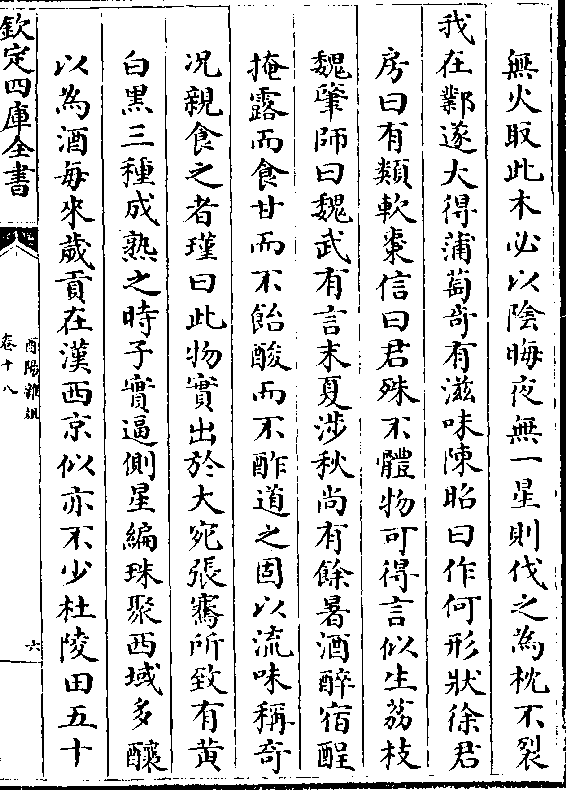 無火取此木必以陰晦夜無一星則伐之為枕不裂
我在鄴遂大得蒲萄奇有滋味陳昭曰作何形狀徐君
房曰有類軟棗信曰君殊不體物可得言似生荔枝
魏肇師曰魏武有言末夏涉秋尚有餘暑酒醉宿酲
掩露而食甘而不飴酸而不酢道之固以流味稱奇
况親食之者瑾曰此物實出於大宛張騫所致有黄
白黑三種成熟之時子實逼側星編珠聚西域多釀
以為酒每來歲貢在漢西京似亦不少杜陵田五十
欽定四庫全書
酉陽雜俎
卷十八
六